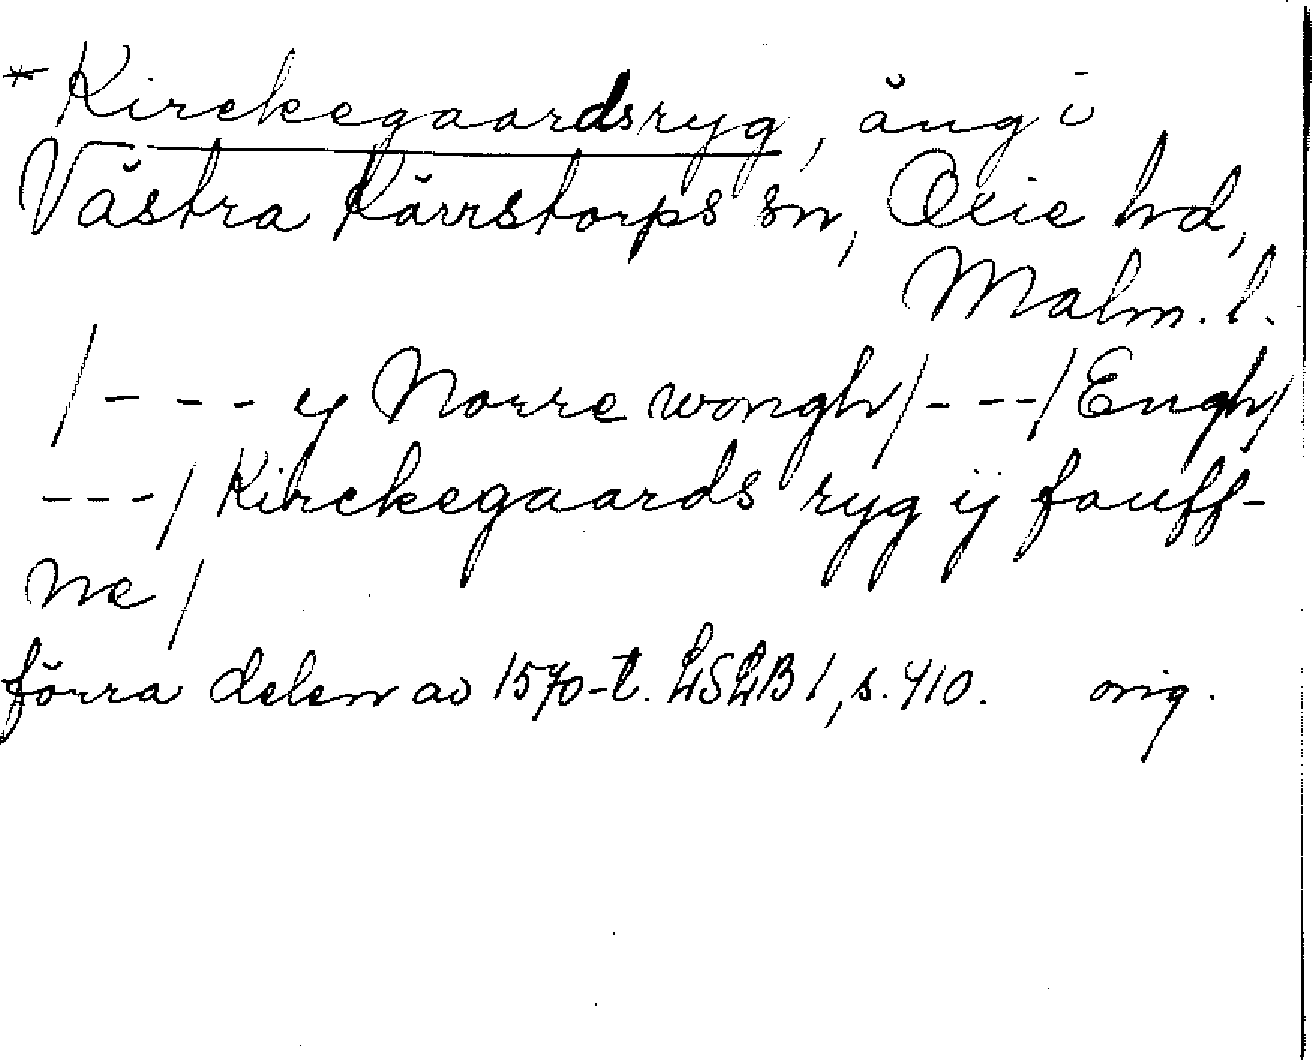 *Kirckegaardsryg, äng i
Västra Kärrstorps sn, Oxie hd,
Malm. l.
/---y Norre wongh/---/Engh/
---/Kirckegaards ryg ij fauff-
ne/
förra delen av 1570-t. LSLB 1, s. 410. orig.